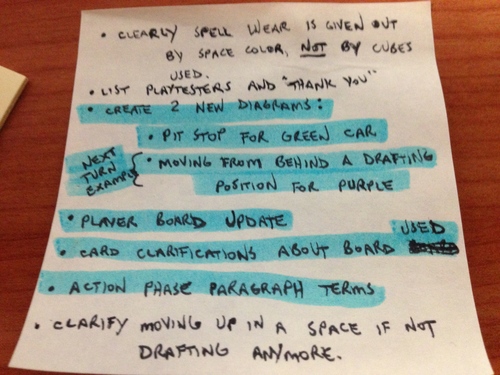 • CLEARLY SPELL WEAR IS GIVEN OUT
BY SPACE COLOR, NOT BY CUBES
USED.
• LIST PLAYTESTERS AND "THANK YOU"
• CREATE 2 NEW DIAGRAMS:
• PIT STOP FOR GREEN CAR
NEXT TURN EXAMPLE { • MOVING FROM BEHIND A DRAFTING
POSITION FOR PURPLE
• PLAYER BOARD UPDATE
• CARD CLARIFICATIONS ABOUT BOARD USED
• ACTION PHASE PARAGRAPH TERMS
• CLARIFY MOVING UP IN A SPACE IF NOT
DRAFTING ANYMORE.